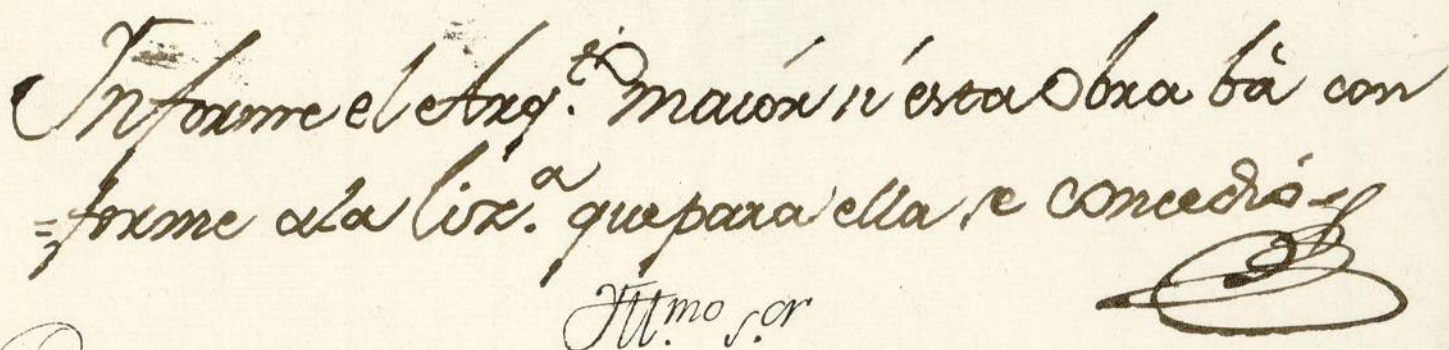 Informe el Arq.to maior si esta Obra bâ con
=forme ala liz.a que para ella se concedió
Ill.mo S.or